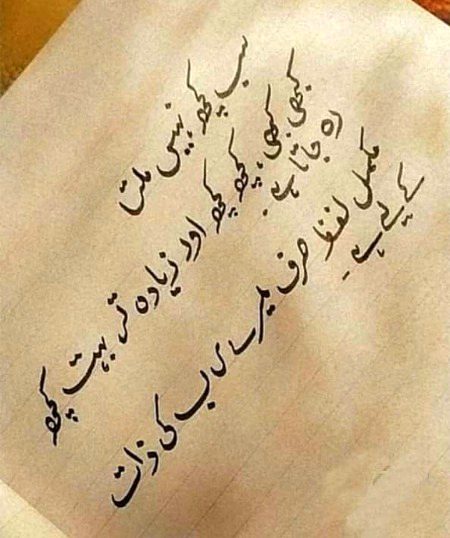 سب کچھ نہیں ملتا
کبھی کبھی، کچھ کچھ اور زیادہ تر بہت کچھ
رہ جاتا ہے۔
مکمل لفظ صرف میرے رب کی ذات
کے لیے ہے۔